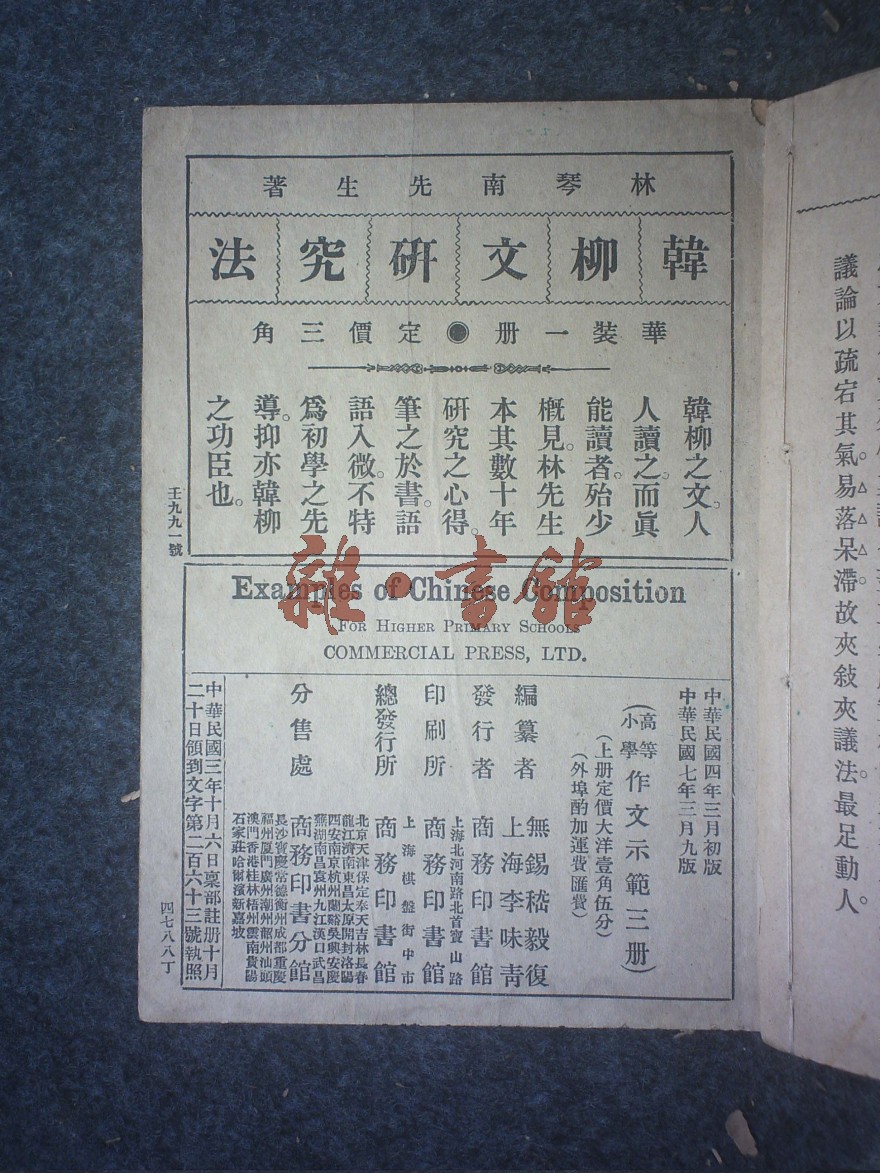 林琴南先生著
韓柳文研究法
華裝一册●定價三角
韓柳之文。人
人讀之。而眞
能讀者。殆少
概見。林先生
本其數十年
研究之心得。
筆之於書。語
語入微。不特
爲初學之先
導。抑亦韓柳
之功臣也。
壬九九一號
Examples of Chinese Composition
FOR HIGHER PRIMARY SCHOOLS
COMMERCIAL PRESS, LTD.
中華民國四年三月初版
中華民國七年三月九版
(高等小學作文示範三册)
(上册定價大洋壹角伍分)
(外埠酌加運費匯費)
編纂者 無錫嵇毅復
上海李味青
發行者 商務印書館
上海北河南路北首寶山路
印刷所 商務印書館
上海棋盤街中市
總發行所 商務印書館
北京天津保定奉天吉林長春
龍江濟南東昌太原開封洛陽
西安南京杭州蘭谿吳興安慶
蕪湖南昌袁州九江漢口武昌
分售處 商務印書分館
長沙寶慶常德衡州成都重慶
福州厦門廣州潮州韶州汕頭
澳門香港桂林梧州雲南貴陽
石家莊哈爾濱新嘉坡
中華民國三年十月六日稟部註册十月
二十日領到文字第二百六十三號執照
四七八八丁
議論以疏宕其氣。易落呆滯。故夾敍夾議法。最足動人。
雜·書館